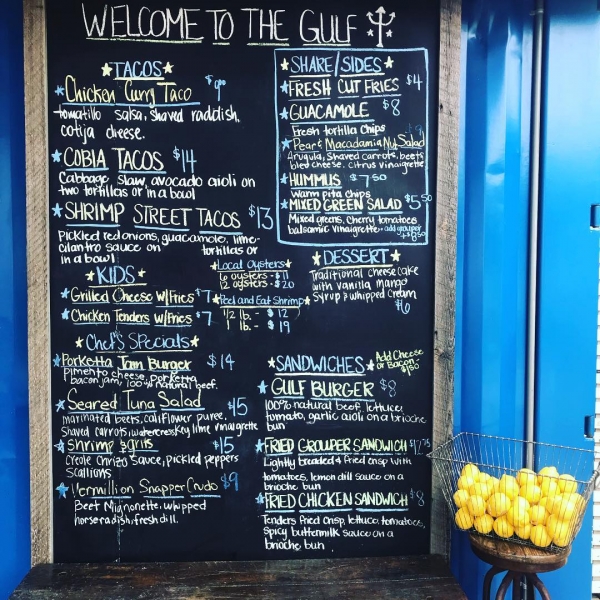 WELCOME TO THE GULF
TACOS
Chicken Curry Taco
tomatillo salsa, shaved raddish,
cotija cheese.
COBIA TACOS $14
Cabbage slaw, avocado aioli on
two tortillas or in a bowl
SHRIMP STREET TACOS $13
Pickled red onions, guacamole, lime-
cilantro sauce on tortillas or
in a bowl
KIDS
Grilled Cheese w/Fries $7
Chicken Tenders w/Fries $7
Local Oysters
6 oysters - $11
12 oysters - $20
Peel and Eat Shrimp
1/2 lb. - $12
1 lb. - $19
Chef's Specials
Porketta Jam Burger $14
pimento cheese, porketta,
bacon jam, 100% natural beef.
Seared Tuna Salad $15
marinated beets, califlower puree,
Shaved carrots, watercress, key lime vinaigrette
Shrimp & grits $15
Creole Chrizo Sauce, pickled peppers
Scallions
Vermillion Snapper Crudo $9
Beet Mignonette, whipped
horseradish, fresh dill.
SHARE/SIDES
FRESH CUT FRIES $4
GUACAMOLE $8
Fresh tortilla chips
Pear & Macadamia Nut Salad
Arugula, Shaved carrots, beets
bleu cheese, citrus vinaigrette
HUMMUS $7.50
warm pita chips
MIXED GREEN SALAD $5.50
Mixed greens, cherry tomatoes
balsamic vinaigrette - add grouper
DESSERT
Traditional cheesecake
with vanilla mango
Syrup & whipped cream
$6
SANDWICHES
Add Cheese
or Bacon -
GULF BURGER $8
100% natural beef, lettuce,
tomato, garlic aioli on a brioche
bun
FRIED GROUPER SANDWICH $12.75
Lightly breaded & fried crisp with
tomatoes, lemon dill sauce on a
brioche bun
FRIED CHICKEN SANDWICH $8
Tenders fried crisp, lettuce, tomatoes,
spicy buttermilk sauce on a
brioche bun